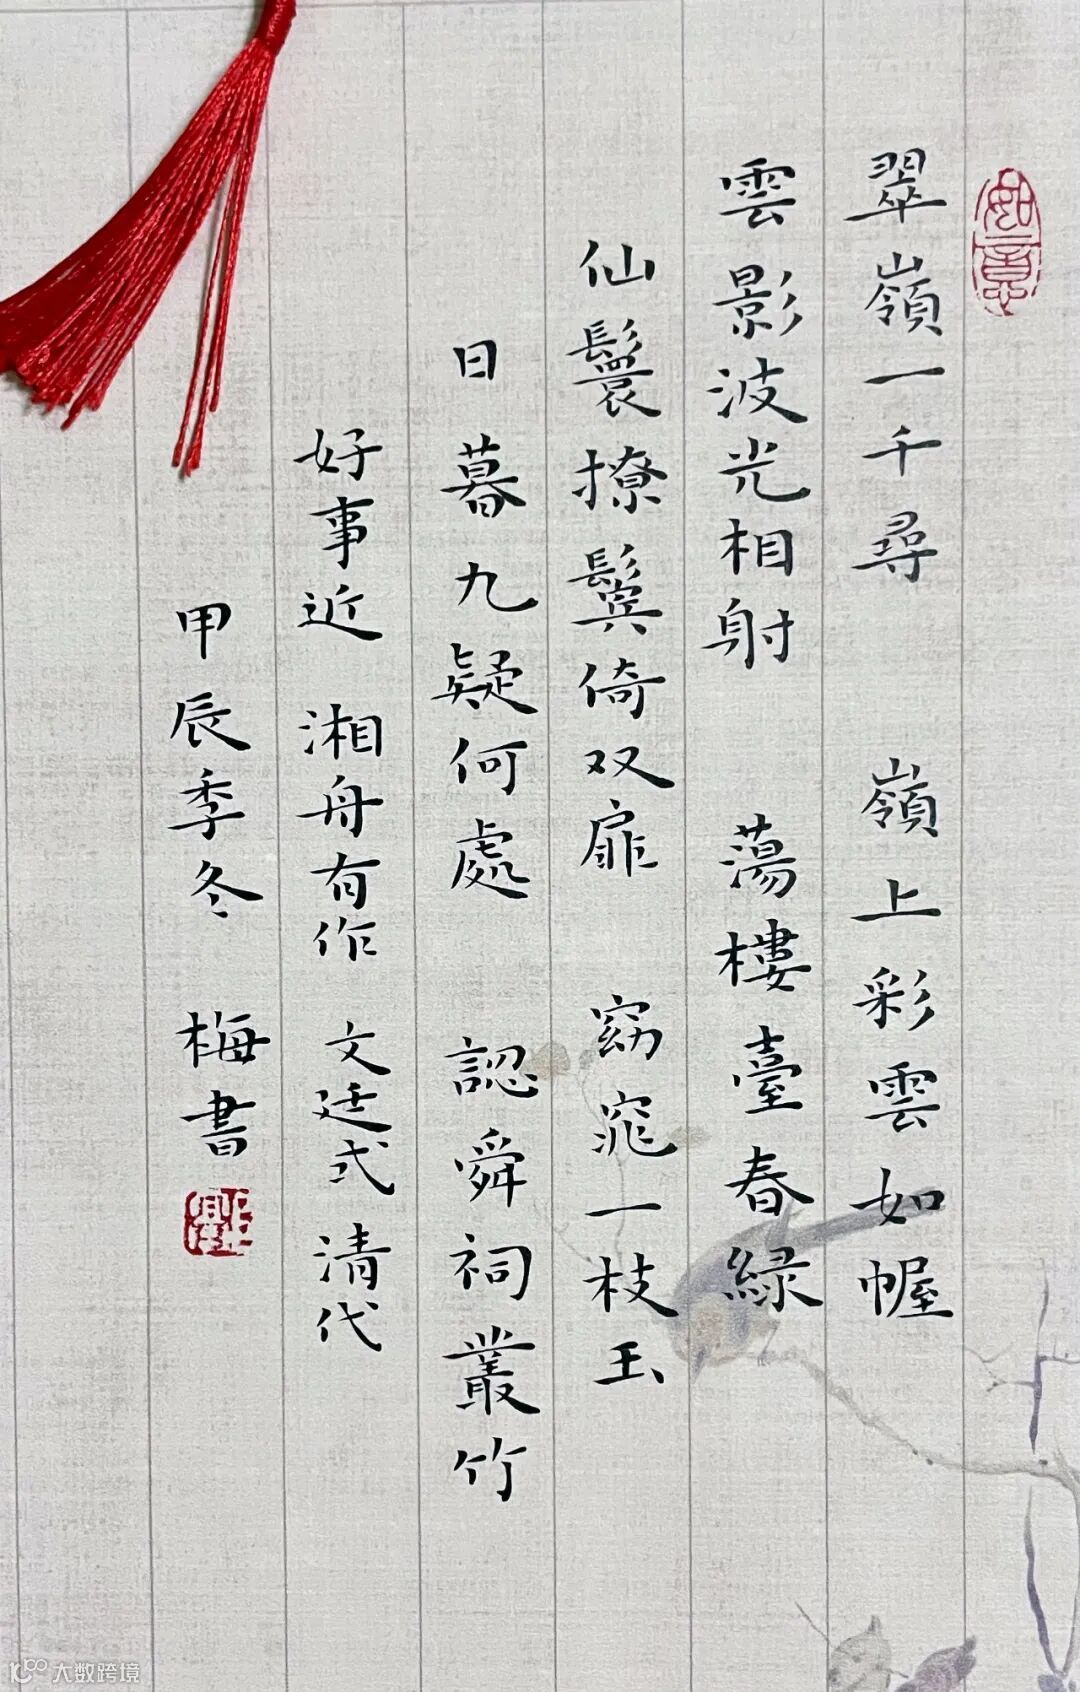 如意
翠嶺一千尋 嶺上彩雲如幄
雲影波光相射 蕩樓臺春綠
仙鬟撩鬢倚双扉 窈窕一枝玉
日暮九疑何處 認舜祠叢竹
好事近 湘舟有作 文廷式 清代
甲辰季冬 梅書
大数跨境